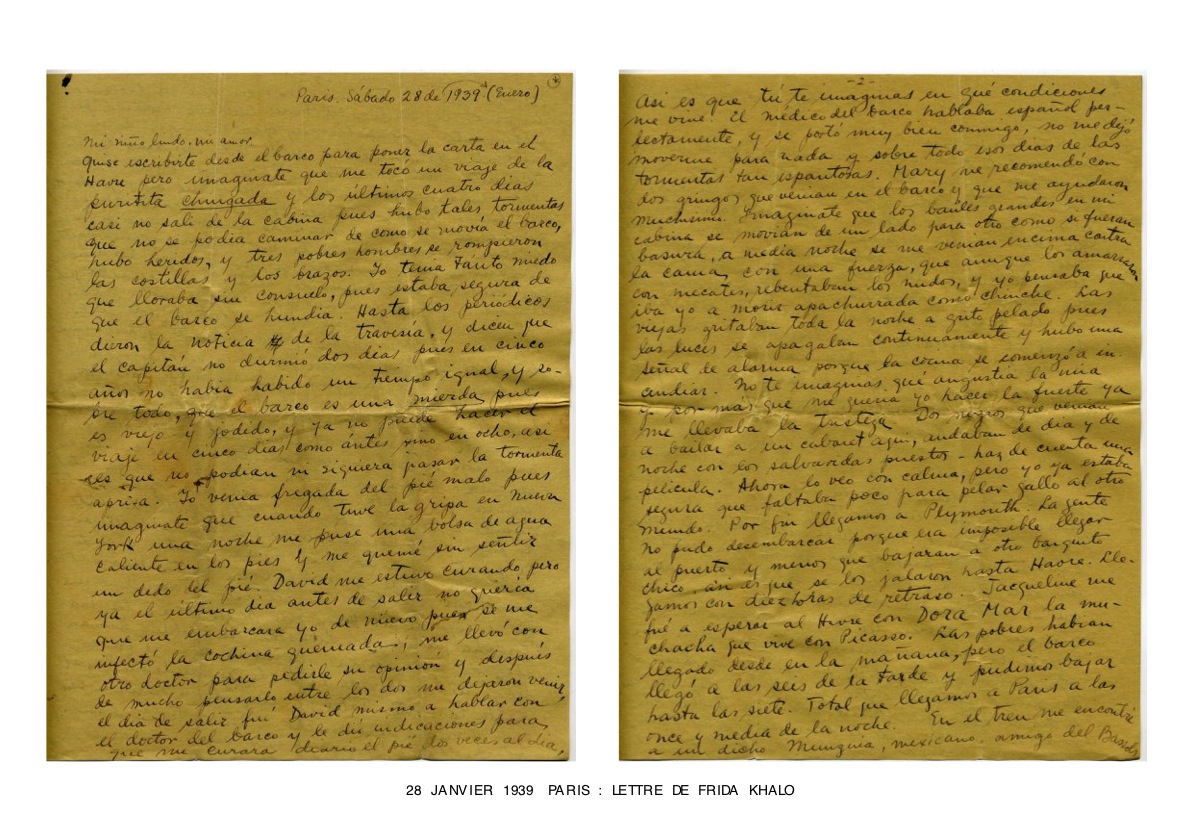 Paris. Sábado 28 de 1939 (Enero)
Mi niño lindo, mi amor
quise escribirte desde el barco para poner la carta en el
Havre pero imaginate que me tocó un viaje de la
puritita chingada y los últimos cuatro dias
casi no salí de la cabina pues hubo tales tormentas
que no se podia caminar de como se movía el barco,
hubo heridos, y tres pobres hombres se rompieron
las costillas y los brazos. Yo tenia tanto miedo
que lloraba sin consuelo, pues estaba segura de
que el barco se hundia. Hasta los periódicos
dieron la noticia de la travesia, y dicen que
el capitán no durmió dos dias pues en cinco
años no habia habido un tiempo igual, y so-
bre todo, que el barco es una mierda pues
es viejo y jodido, y ya no puede hacer el
viaje en cinco dias como ántes sino en ocho, asi
es que no podian ni siquiera pasar la tormenta
aprisa. Yo venia fregada del pié malo pues
imaginate que cuando tuve la gripa en Nueva
York una noche me puse una bolsa de agua
caliente en los pies y me quemé sin sentir
un dedo del pié. David me estuvo curando pero
ya el último dia antes de salir no queria
que me embarcara yo de nuevo pues se me
infectó la cochina quemada, me llevó con
otro doctor para pedirle su opinión y después
de mucho pensarlo entre los dos me dejaron venir,
el dia de salir fué David mismo a hablar con
el doctor del barco y le dió indicaciones para
que me curara diario el pié dos veces al dia,
-2-
Asi es que tú te imaginas en qué condiciones
me vine. El médico del barco hablaba español per-
fectamente, y se portó muy bien conmigo, no me dejó
moverme para nada y sobre todo esos dias de las
tormentas tan espantosas. Mary me recomendó con
dos gringos que venian en el barco y que me ayudaron
muchisimo. Imaginate que los baúles grandes en mi
cabina se movian de un lado para otro como si fueran
basura, a media noche se me venian encima contra
la cama, con una fuerza, que aunque los amarraron
con mecates, rebentaban los nudos, y yo pensaba que
iva yo a morir apachurrada como chinche. Las
viejas gritaban toda la noche a grito pelado pues
las luces se apagaban continuamente y hubo una
señal de alarma porque la cocina se comenzó a in-
cendiar. No te imaginas qué angustia la mia
y por mas que me queria yo hacer la fuerte ya
me llevaba la tristeza. Dos negros que venian
a bailar a un cabaret aqui, andaban de dia y de
noche con los salvavidas puestos - haz de cuenta una
pelicula. Ahora lo veo con calma, pero yo ya estaba
segura que faltaba poco para pelar gallo al otro
mundo. Por fin llegamos a Plymouth. La gente
no pudo desembarcar porque era imposible llegar
al puerto y menos que bajaran a otro barquito
chico, asi es que se los jalaron hasta Havre. Lle-
gamos con diez horas de retraso. Jacqueline me
fué a esperar al Havre con Dora Mar la mu-
chacha que vive con Picasso. Las pobres habian
llegado desde en la mañana, pero el barco
llegó a las seis de la tarde y pudimos bajar
hasta las siete. Total que llegamos a Paris a las
once y media de la noche. En el tren me encontré
a un dicho Munguia, mexicano, amigo del Bassols
28 JANVIER 1939 PARIS : LETTRE DE FRIDA KHALO